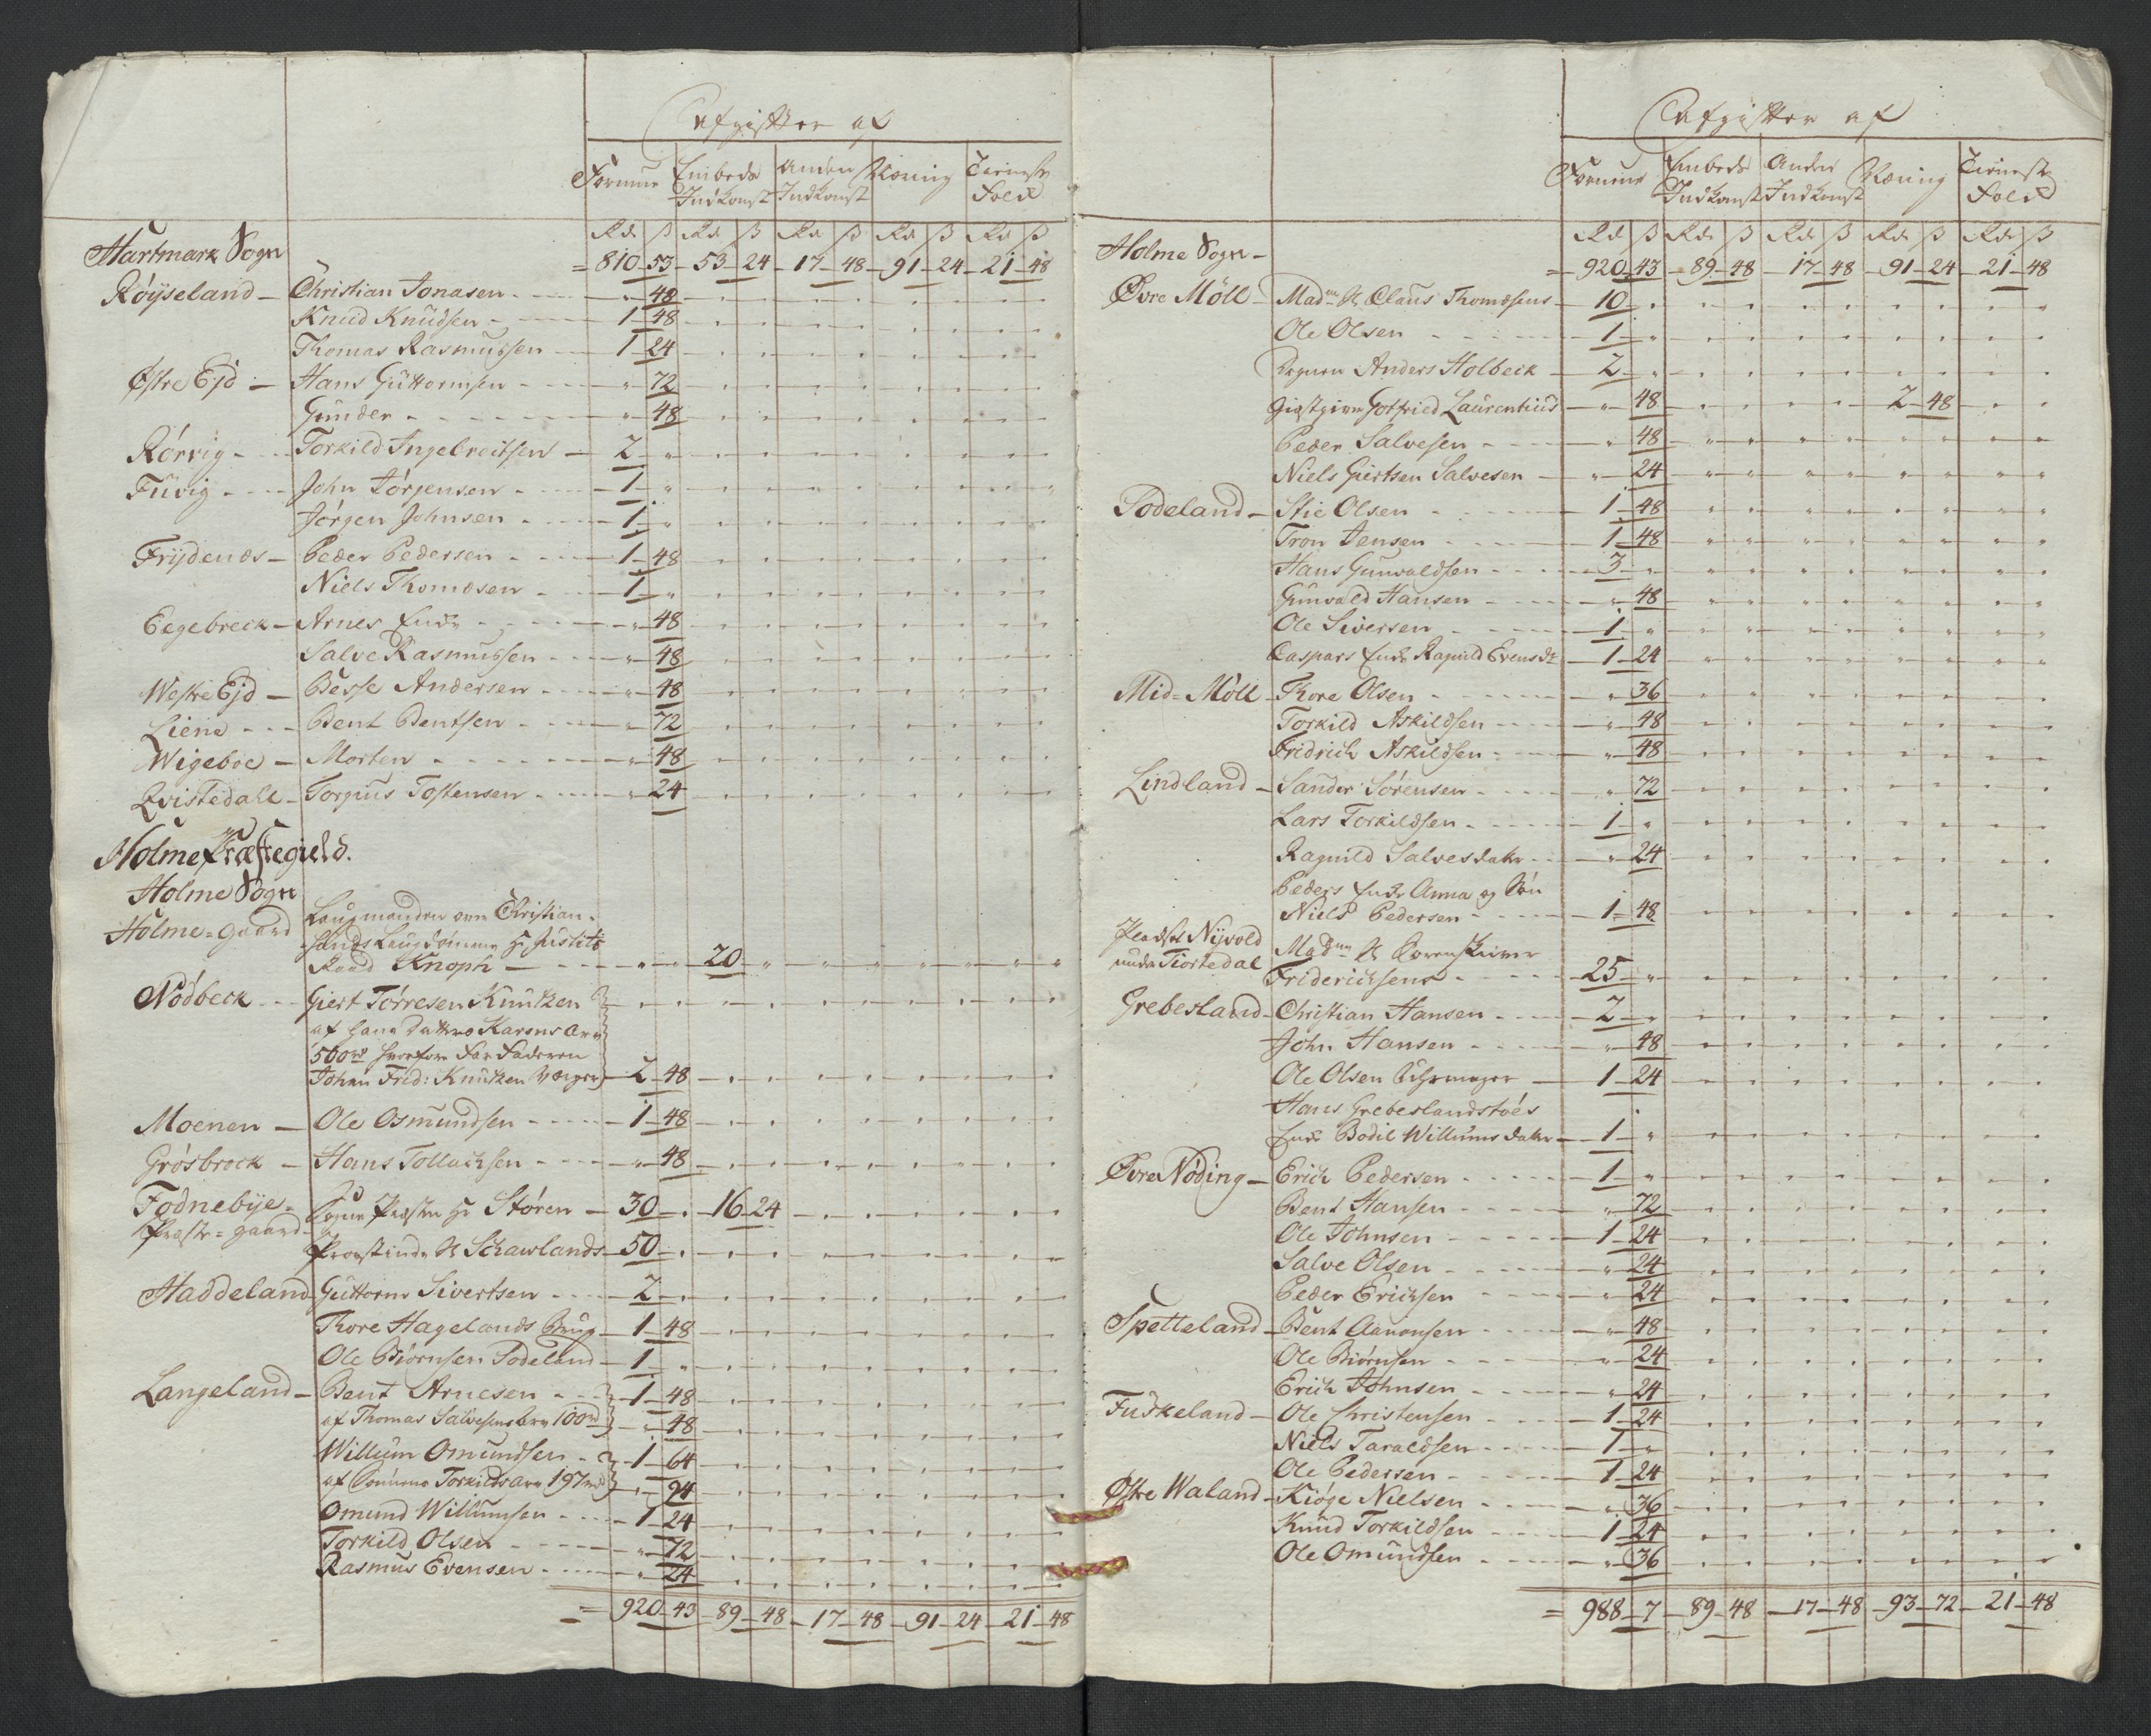 Afgifter af
Formue Embeds Indkomst Anden Indkomst Næring Tieneste Folk
Rd ß Rd ß Rd ß Rd ß Rd ß
Hartmark Sogn = 810 53 - 53 24 - 17 - 48 - 91 - 24 - 21 - 48
Røÿseland - Christian Jonasen - " 48
Knud Knudsen - 1 - 48
Thomas Rasmussen - 1 - 24
Østre Ejd - Hans Guttormsen - " 72
Gunder - " 48
Rørvig - Torkild Ingebreitsen - 2 "
Fuvig - John Jørgensen - 1 "
Jørgen Johnsen - 1 "
Frÿdenæs - Peder Pedersen - 1 - 48
Niels Thomæsen - 1 "
Eegebreck - Arnes Enke - " 48
Salve Rasmussen - " 48
Westre Ejd - Besse Andersen - " 48
Liene - Bent Bentsen - " 72
Wigeboe - Morten - " 48
Qvistedahl - Torgius Tostensen - " 24
Holme Præstegield.
Holme Sogn
Holme-gaard Laugmanden over Christian-
sands Laugdømme Hr Justits
Raad Knoph - " " 20 "
Nødbeck - Giert Tørresen Knutzen
af hans Datters Karens Arv
500 rd hvorfore Far Faderen
Johan Frid: Knutzen Værger - 2 - 48
Moenen - Ole Osmundsen - 1 - 48
Grøsbrock - Hans Tollachsen - " 48
Fodnebÿe - Sogne Præsten Hr Støren - 30 " 16 24
Præste-gaard
Provstinde Schawlands - 50 "
Haddeland Guttorm Sivertsen - 2 "
Thore Hagelands Brug - 1 - 48
Ole Biørnsen Sodeland - 1 "
Langeland - Bent Arnesen - 1 - 48
af Thomas Salvesens Arv 100 rd - " 48
Willum Omundsen - 1 - 64
af Sønnens Torkilds Arv 197 rd - " 94
Omund Willumsen - 1 24
Torkild Olsen - " 72
Rasmus Evensen - " 24
= 920 - 43 - 89 - 48 - 17 - 48 - 91 - 24 - 21 - 48
Afgifter af
Formue Embeds Indkomst Anden Indkomst Næring Tieneste Folk
Rd ß Rd ß Rd ß Rd ß Rd ß
Holme Sogn - = 920 43 - 89 - 48 - 17 - 48 - 91 - 24 - 21 - 48
Øvre Møll - Madme Claus Thomæsens - 10 "
Ole Olsen - 1 "
Degnen Anders Holbeck - 2 "
Giestgiver Gotfried Laurentius - " 48 2 - 48
Peder Salvesen - " 48
Niels Giertsen Salvesen - " 24
Sodeland - Stie Olsen - 1 - 48
Tron Jensen - 1 - 48
Hans Gunvaldsen - 3 "
Gunvald Hansen - " 48
Ole Siversen - 1 "
Caspars Enke Ragnild Evensdr - 1 - 24
Mid-Møll - Thore Olsen - " 36
Torkild Askildsen - " 48
Fridrich Askildsen - " 48
Lindland - Sander Sørensen - " 72
Lars Torkildsen - 1 "
Ragnild Salvesdatter - " 24
Peders Enke Anna og Søn
Niels Pedersen - 1 - 48
Pladset Nÿvold Madme Sorenskriver
under Tiortedal Friderichsens - 25 "
Grebesland - Christian Hansen - 2 "
John Hansen - " 48
Ole Olsen Uhrmager - 1 - 24
Hans Grebeslandstøes
Enke Bodil Willums datter - 1 "
Øvre Nøding - Erich Pedersen - 1 "
Bent Hansen - " 72
Ole Johnsen - 1 - 24
Salve Olsen - " 24
Peder Erichsen - " 24
Spetteland - Bent Aanonsen - " 48
Ole Biørnsen - " 24
Erich Johnsen - " 24
Fuskeland - Ole Christensen - 1 - 24
Niels Taraldsen - 1 "
Ole Pedersen - 1 24
Østre Waland - Kiøge Nielsen - " 36
Knud Torkildsen - 1 24
Ole Omundsen - " 36
= 988 - 7 - 89 - 48 - 17 - 48 - 93 - 72 - 21 - 48